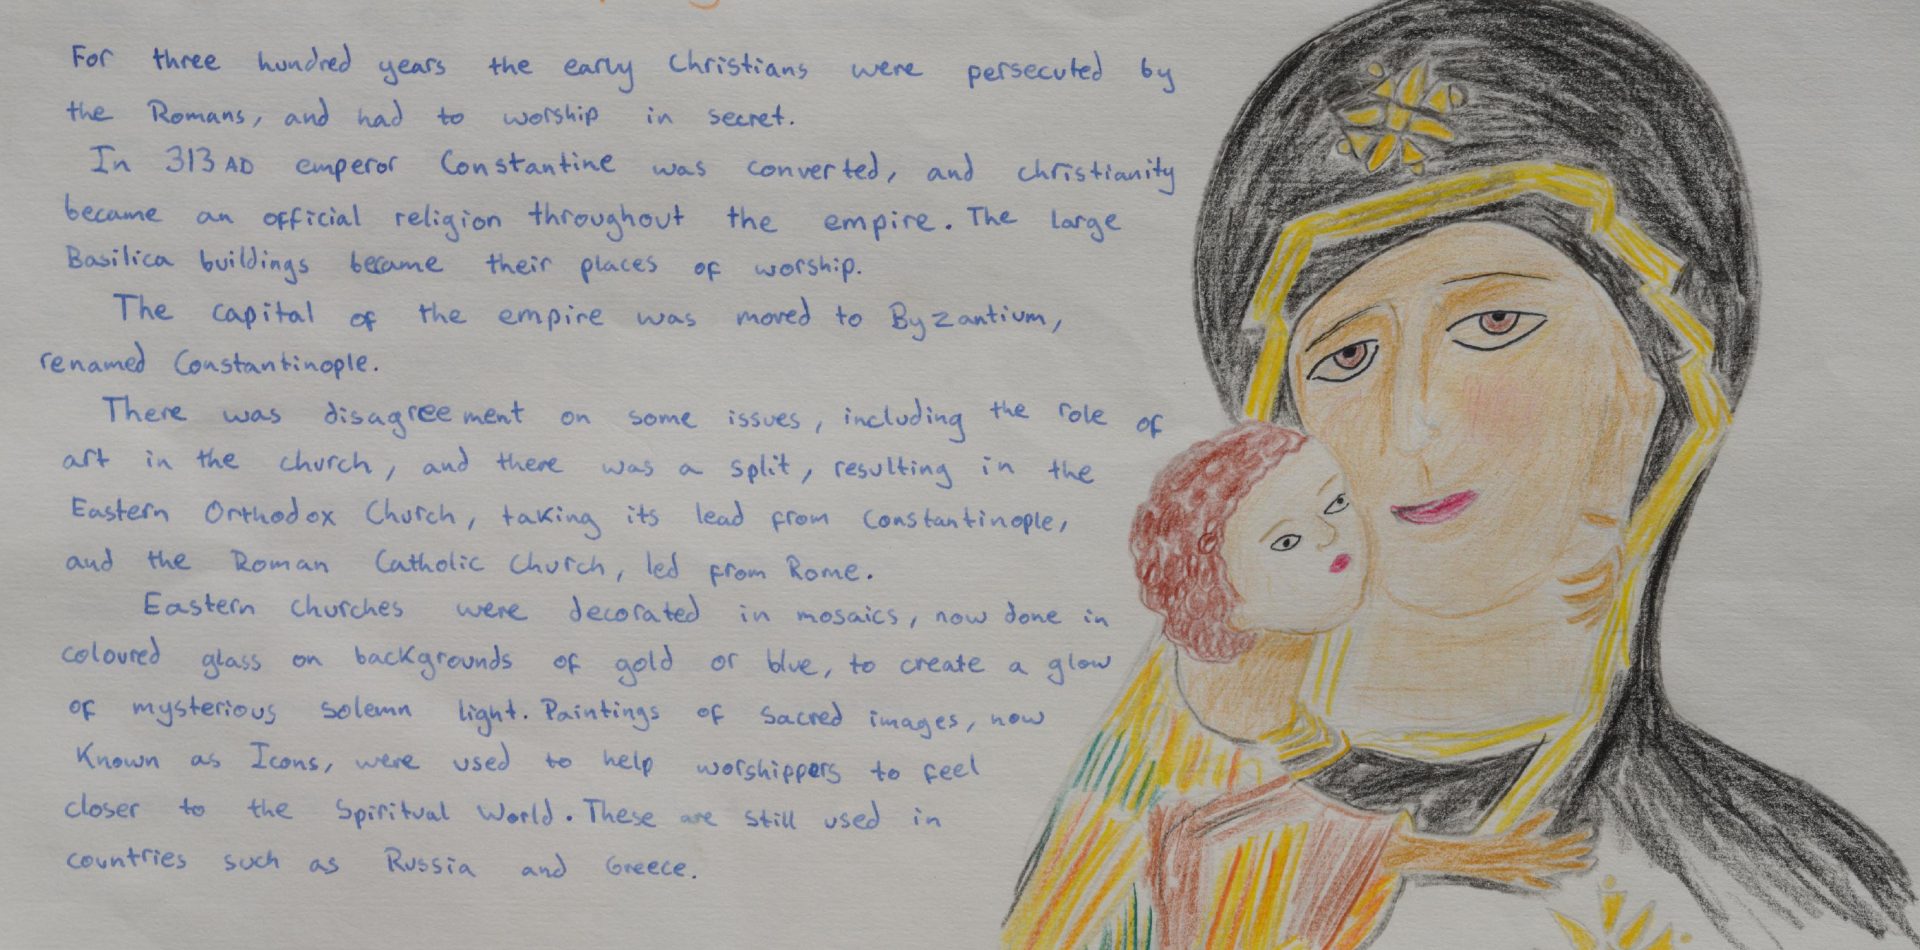 For three hundred years the early Christians were persecuted by
the Romans, and had to worship in secret.
In 313 AD emperor Constantine was converted, and christianity
became an official religion throughout the empire. The large
Basilica buildings became their places of worship.
The capital of the empire was moved to Byzantium,
renamed Constantinople.
There was disagreement on some issues, including the role of
art in the church, and there was a split, resulting in the
Eastern Orthodox Church, taking its lead from Constantinople,
and the Roman Catholic Church, led from Rome.
Eastern churches were decorated in mosaics, now done in
coloured glass on backgrounds of gold or blue, to create a glow
of mysterious solemn light. Paintings of sacred images, now
known as Icons, were used to help worshippers to feel
closer to the Spiritual World. These are still used in
countries such as Russia and Greece.